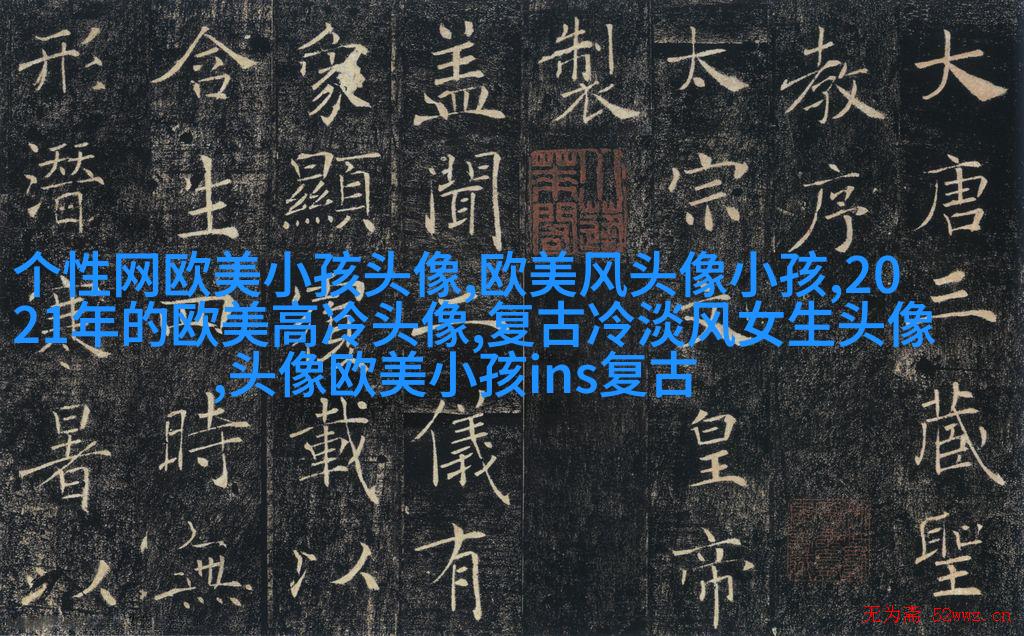 大唐三蔵聖
教序
太宗文皇帝
製
盖聞二儀有
象顯覆載以
含生四時無
形潛寒暑以
个性网欧美小孩头像,欧美风头像小孩,20
21年的欧美高冷头像,复古冷淡风女生头像
,头像欧美小孩ins复古
无为斋 52wwz.cn